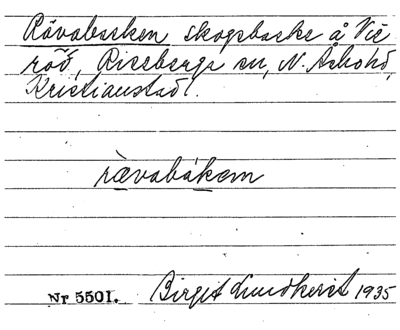 Rävabacken skogsbacke å Vie
röd, Riseberga sn, N. Åsbohd,
Kristianstad l.
rævabákem
Nr 5501. Birgit Lundkvist 1935